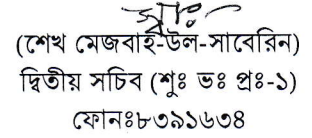 স্বাঃ
(শেখ মেজবাহ-উল-সাবেরিন)
দ্বিতীয় সচিব (শুঃ ভঃ প্রঃ-১)
ফোনঃ৮৩৯১৬৩৪